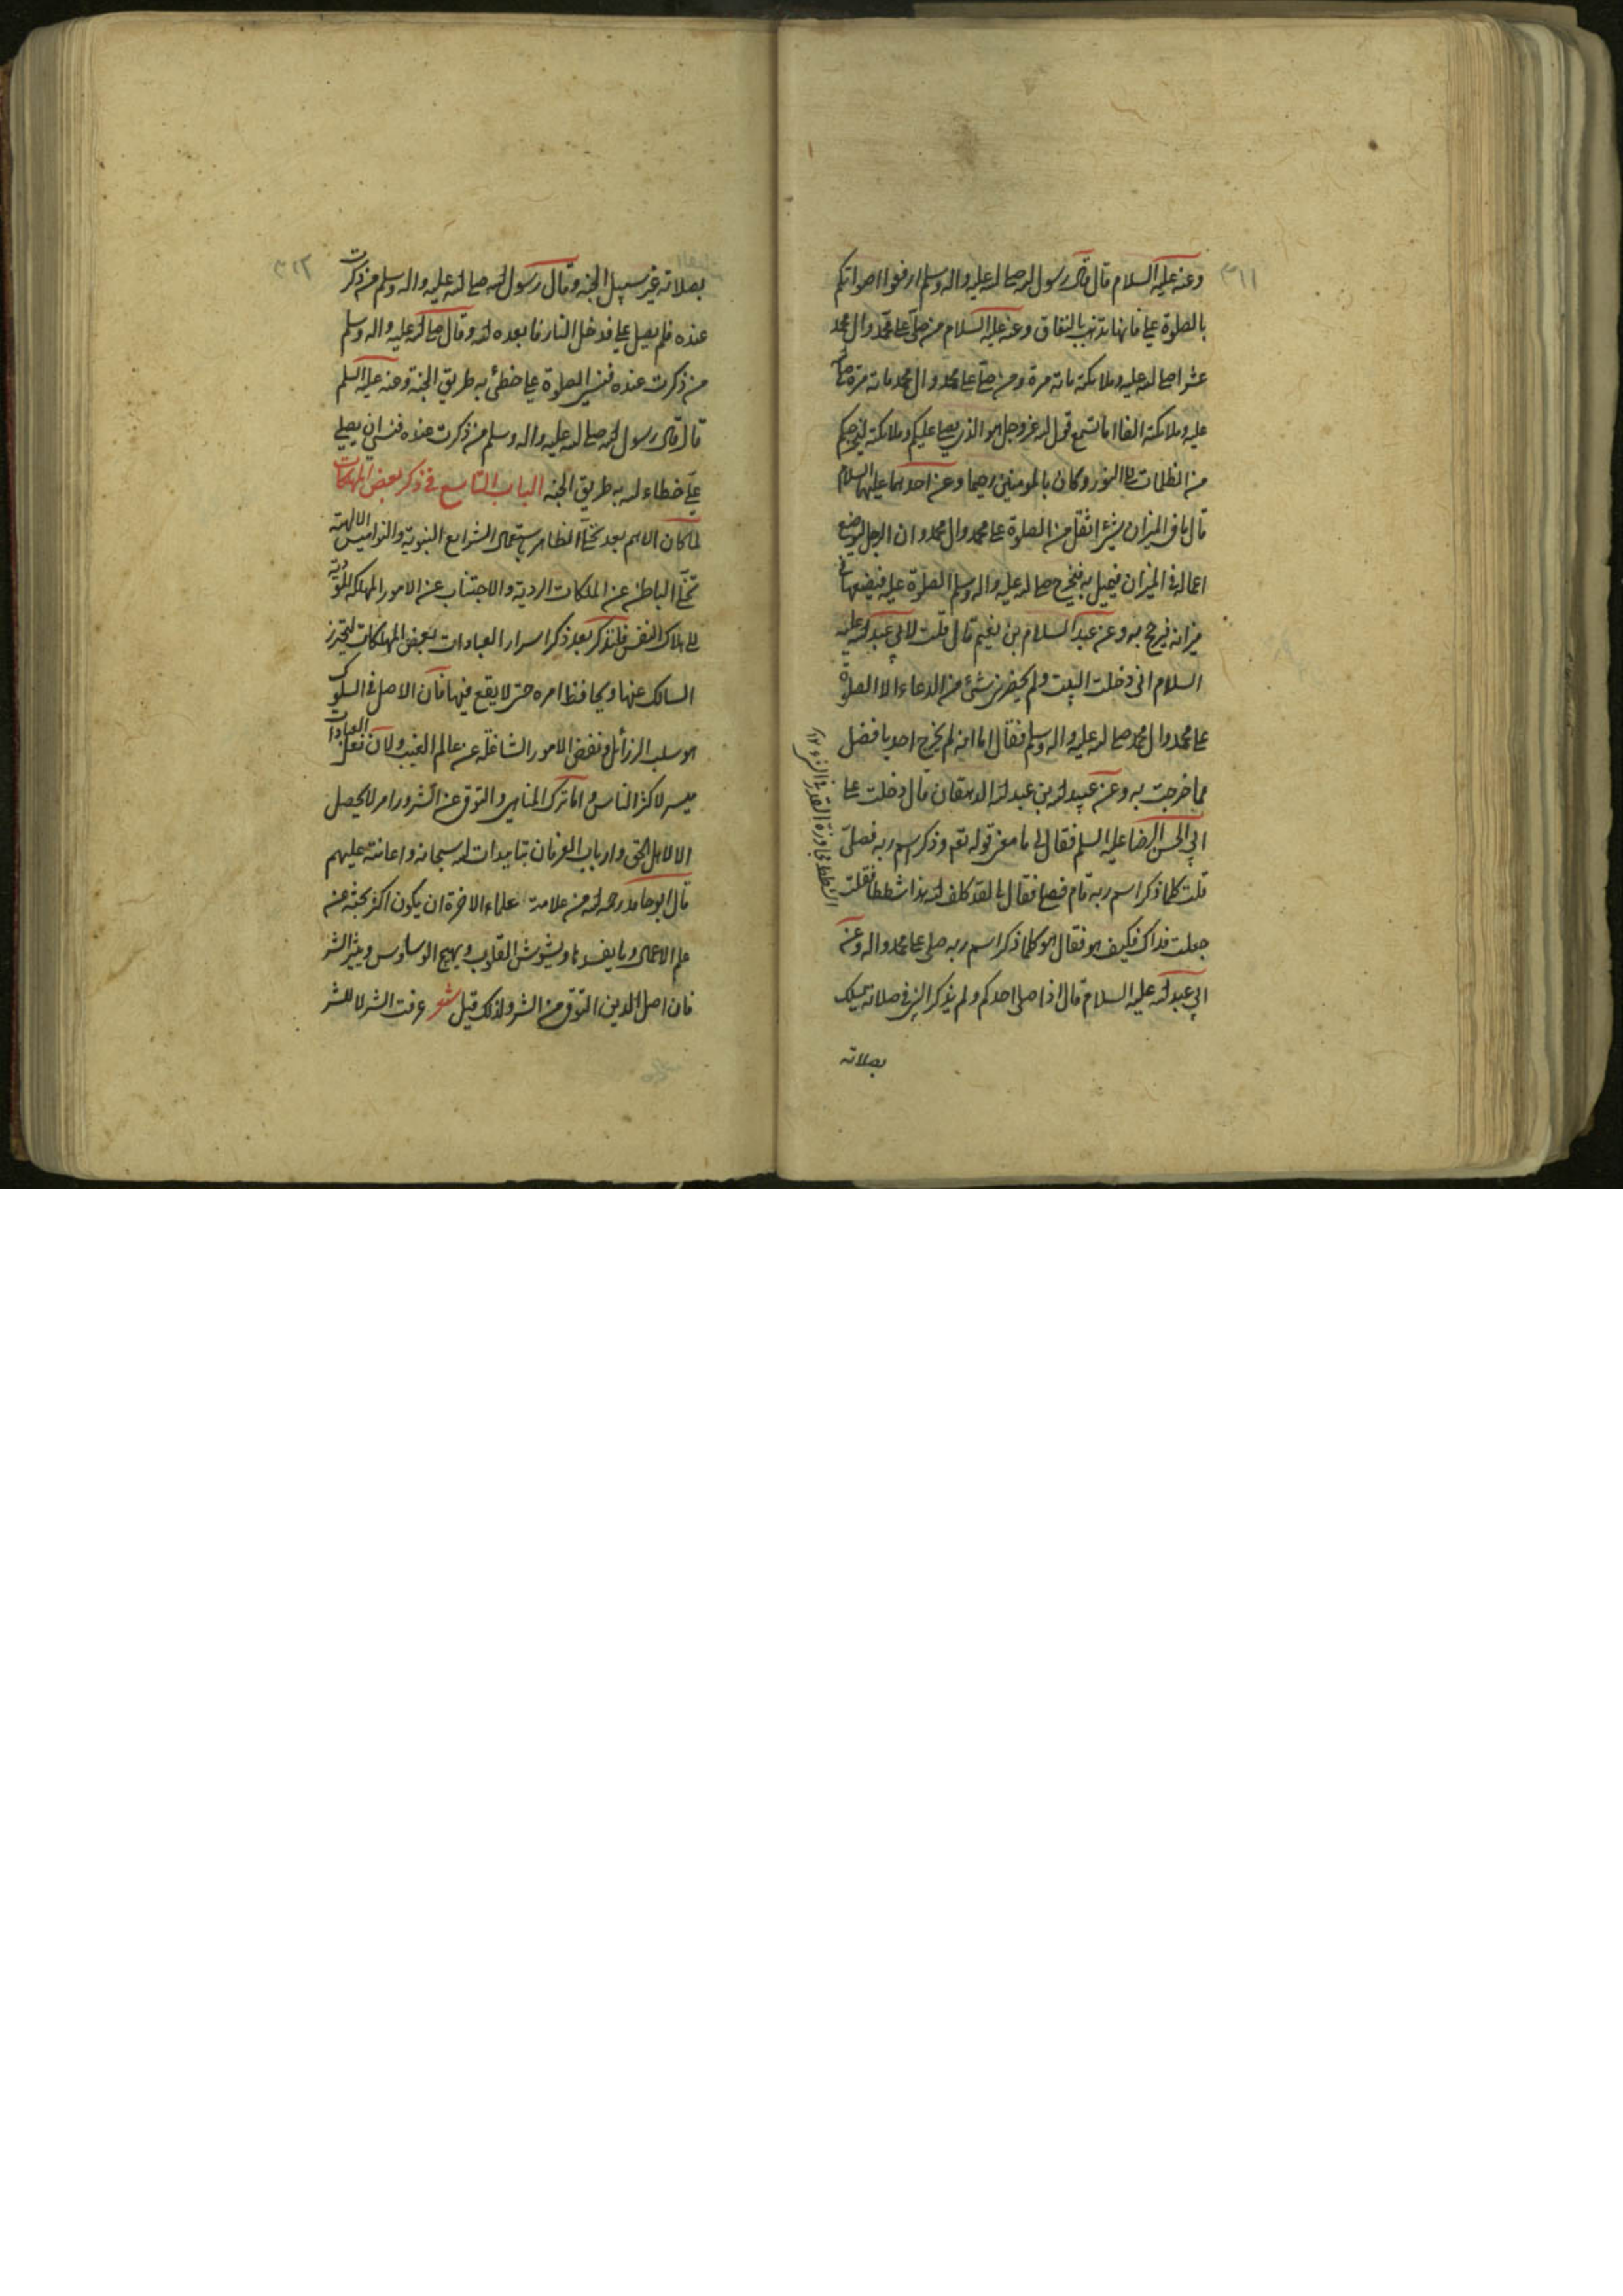 ٣١١
وعنه عليه السلام قال قال رسول الله صلى الله عليه واله وسلم ارفعوا اصواتكم
بالصلوة علي فانها تذهب بالنفاق وعنه عليه السلام من صلى على محمد وال محمد
عشرا صلى الله عليه وملائكته مائة مرة ومن صلى على محمد وال محمد مائة مرة صلى الله
عليه وملائكته الفا اما تسمع قول الله عز وجل هو الذي يصلي عليكم وملائكته ليخرجكم
من الظلمات الى النور وكان بالمومنين رحيما وعن احدهما عليهما السلام
قال ما في الميزان شيئ اثقل من الصلوة على محمد وال محمد وان الرجل ليوضع
اعماله في الميزان فيميل به فيخرج صلى الله عليه واله وسلم الصلوة عليه فيضعها في
ميزانه فيرجح به وعن عبد السلام بن نعيم قال قلت لابي عبد الله عليه
السلام انى دخلت البيت ولم يحضرني شئ من الدعاء الا الصلوة
على محمد وال محمد صلى الله عليه واله وسلم فقال اما انه لم يخرج احد بافضل
مما خرجت به وعن عبيد الله بن عبد الله الدهقان قال دخلت على
ابي الحسن الرضا عليه السلم فقال لي ما معنى قوله تعم وذكر اسم ربه فصلى
قلت كلما ذكر اسم ربه قام فصلى فقال لي لقد كلف الله هذا شططا فقلت
جعلت فداك فكيف هو فقال هو كلما ذكر اسم ربه صلى على محمد واله وعن
ابي عبد الله عليه السلام قال اذا صلى احدكم ولم يذكر النبي في صلاته يسلك
بصلاته
الشطط مجاوزة القدر في الشيء
٣١٢
بصلاته غير سبيل الجنه وقال رسول الله صلى الله عليه واله وسلم من ذكرت
عنده فلم يصل علي فدخل النار فابعده الله وقال صلى الله عليه واله وسلم
من ذكرت عنده فنسي الصلوة علي خطئ به طريق الجنة وعنه عليه السلم
قال قال رسول الله صلى الله عليه واله وسلم من ذكرت عنده فنسي ان يصلي
علي خطاء الله به طريق الجنه الباب التاسع في ذكر بعض المهلكات
لما كان الاهم بعد تخلي الظاهر بستعمال الشرايع النبوية والنواميس الالهية
تخلي الباطن عن الملكات الردية والاجتناب عن الامور المهلكه المؤدية
الى هلاك النفس فلنذكر بعد ذكر اسرار العبادات بعض المهلكات ليتحرز
السالك عنها ويحافظ امره حتى لا يقع فيها فان الاصل في السلوك
هو سلب الرزائل ونفض الامور الشاغلة عن عالم الغيب ولان فعل العبادات
ميسر لاكثر الناس واما ترك المناهي والتوقي عن الشرور امر لا يحصل
الا لاهل الحق وارباب العرفان بتاييدات الله سبحانه واعانته عليهم
قال ابو حامد رحمه الله من علامة علماء الاخرة ان يكون اكثر بحثه عن
علم الاعمال وما يفسدها ويشوش القلوب ويهيج الوساوس ويثير الشر
فان اصل الدين التوقي من الشر ولذلك قيل شعر عرفت الشر لا للشر